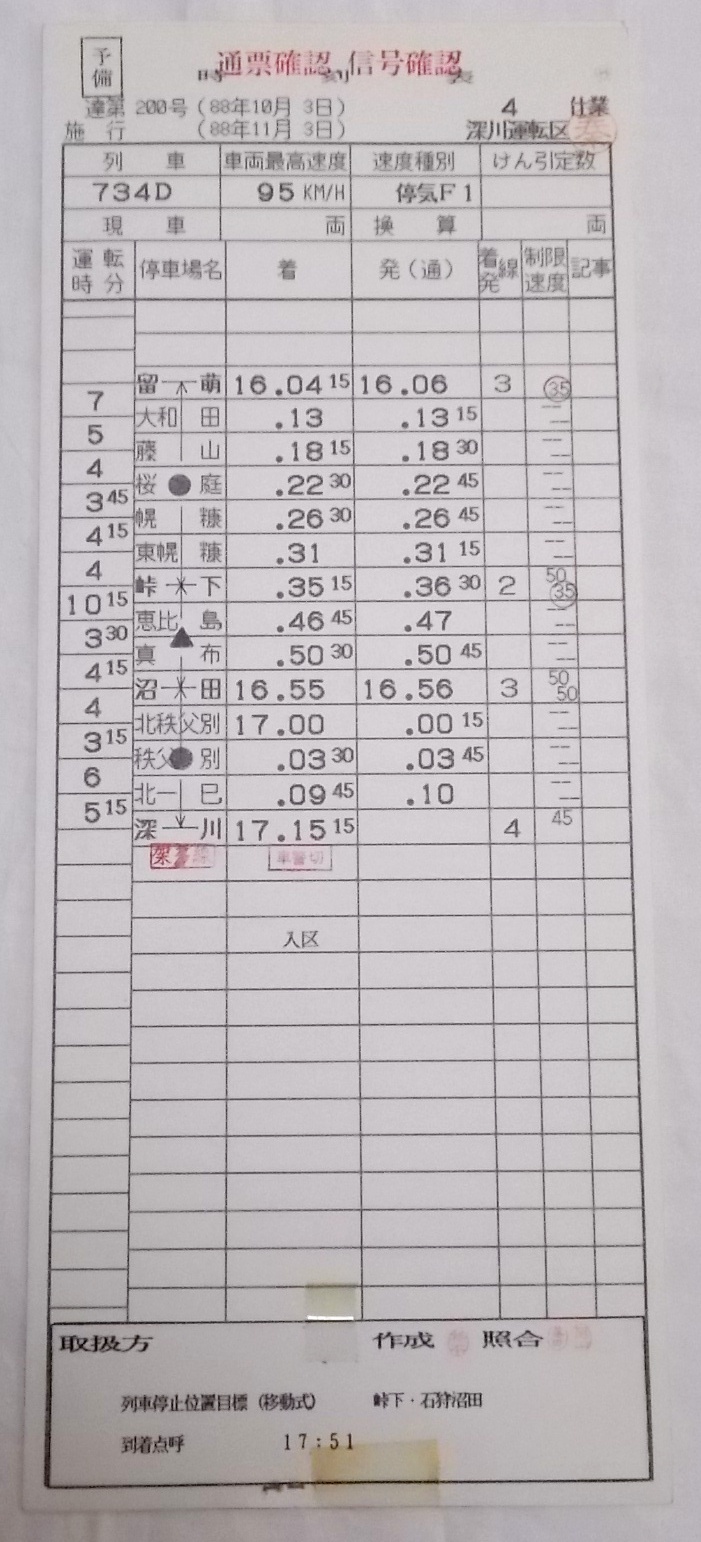 予備
通票確認 信号確認
時 刻 表
達第 200号 (88年10月 3日) 4 仕業
施 行 (88年11月 3日) 深川運転区
列 車 車両最高速度 速度種別 けん引定数
734D 95 KM/H 停気F1
現 車 両 換 算 両
運転時分 停車場名 着 発(通) 着発線 制限速度 記事
留 萌 16.04 15 16.06 3 35
7
大和 田 .13 .13 15
5
藤 山 .18 15 .18 30
4
桜 庭 .22 30 .22 45
3 45
幌 糠 .26 30 .26 45
4 15
東幌 糠 .31 .31 15
4
峠 下 .35 15 .36 30 2 50 35
10 15
恵比 島 .46 45 .47
3 30
真 布 .50 30 .50 45
4 15
沼 田 16.55 16.56 3 50 50
4
北秩父別 17.00 .00 15
3 15
秩父 別 .03 30 .03 45
6
北一 巳 .09 45 .10
5 15
深 川 17.15 15 4 45
車警切
入区
取扱方 作成 照合
列車停止位置目標 (移動式) 峠下・石狩沼田
到着点呼 17:51